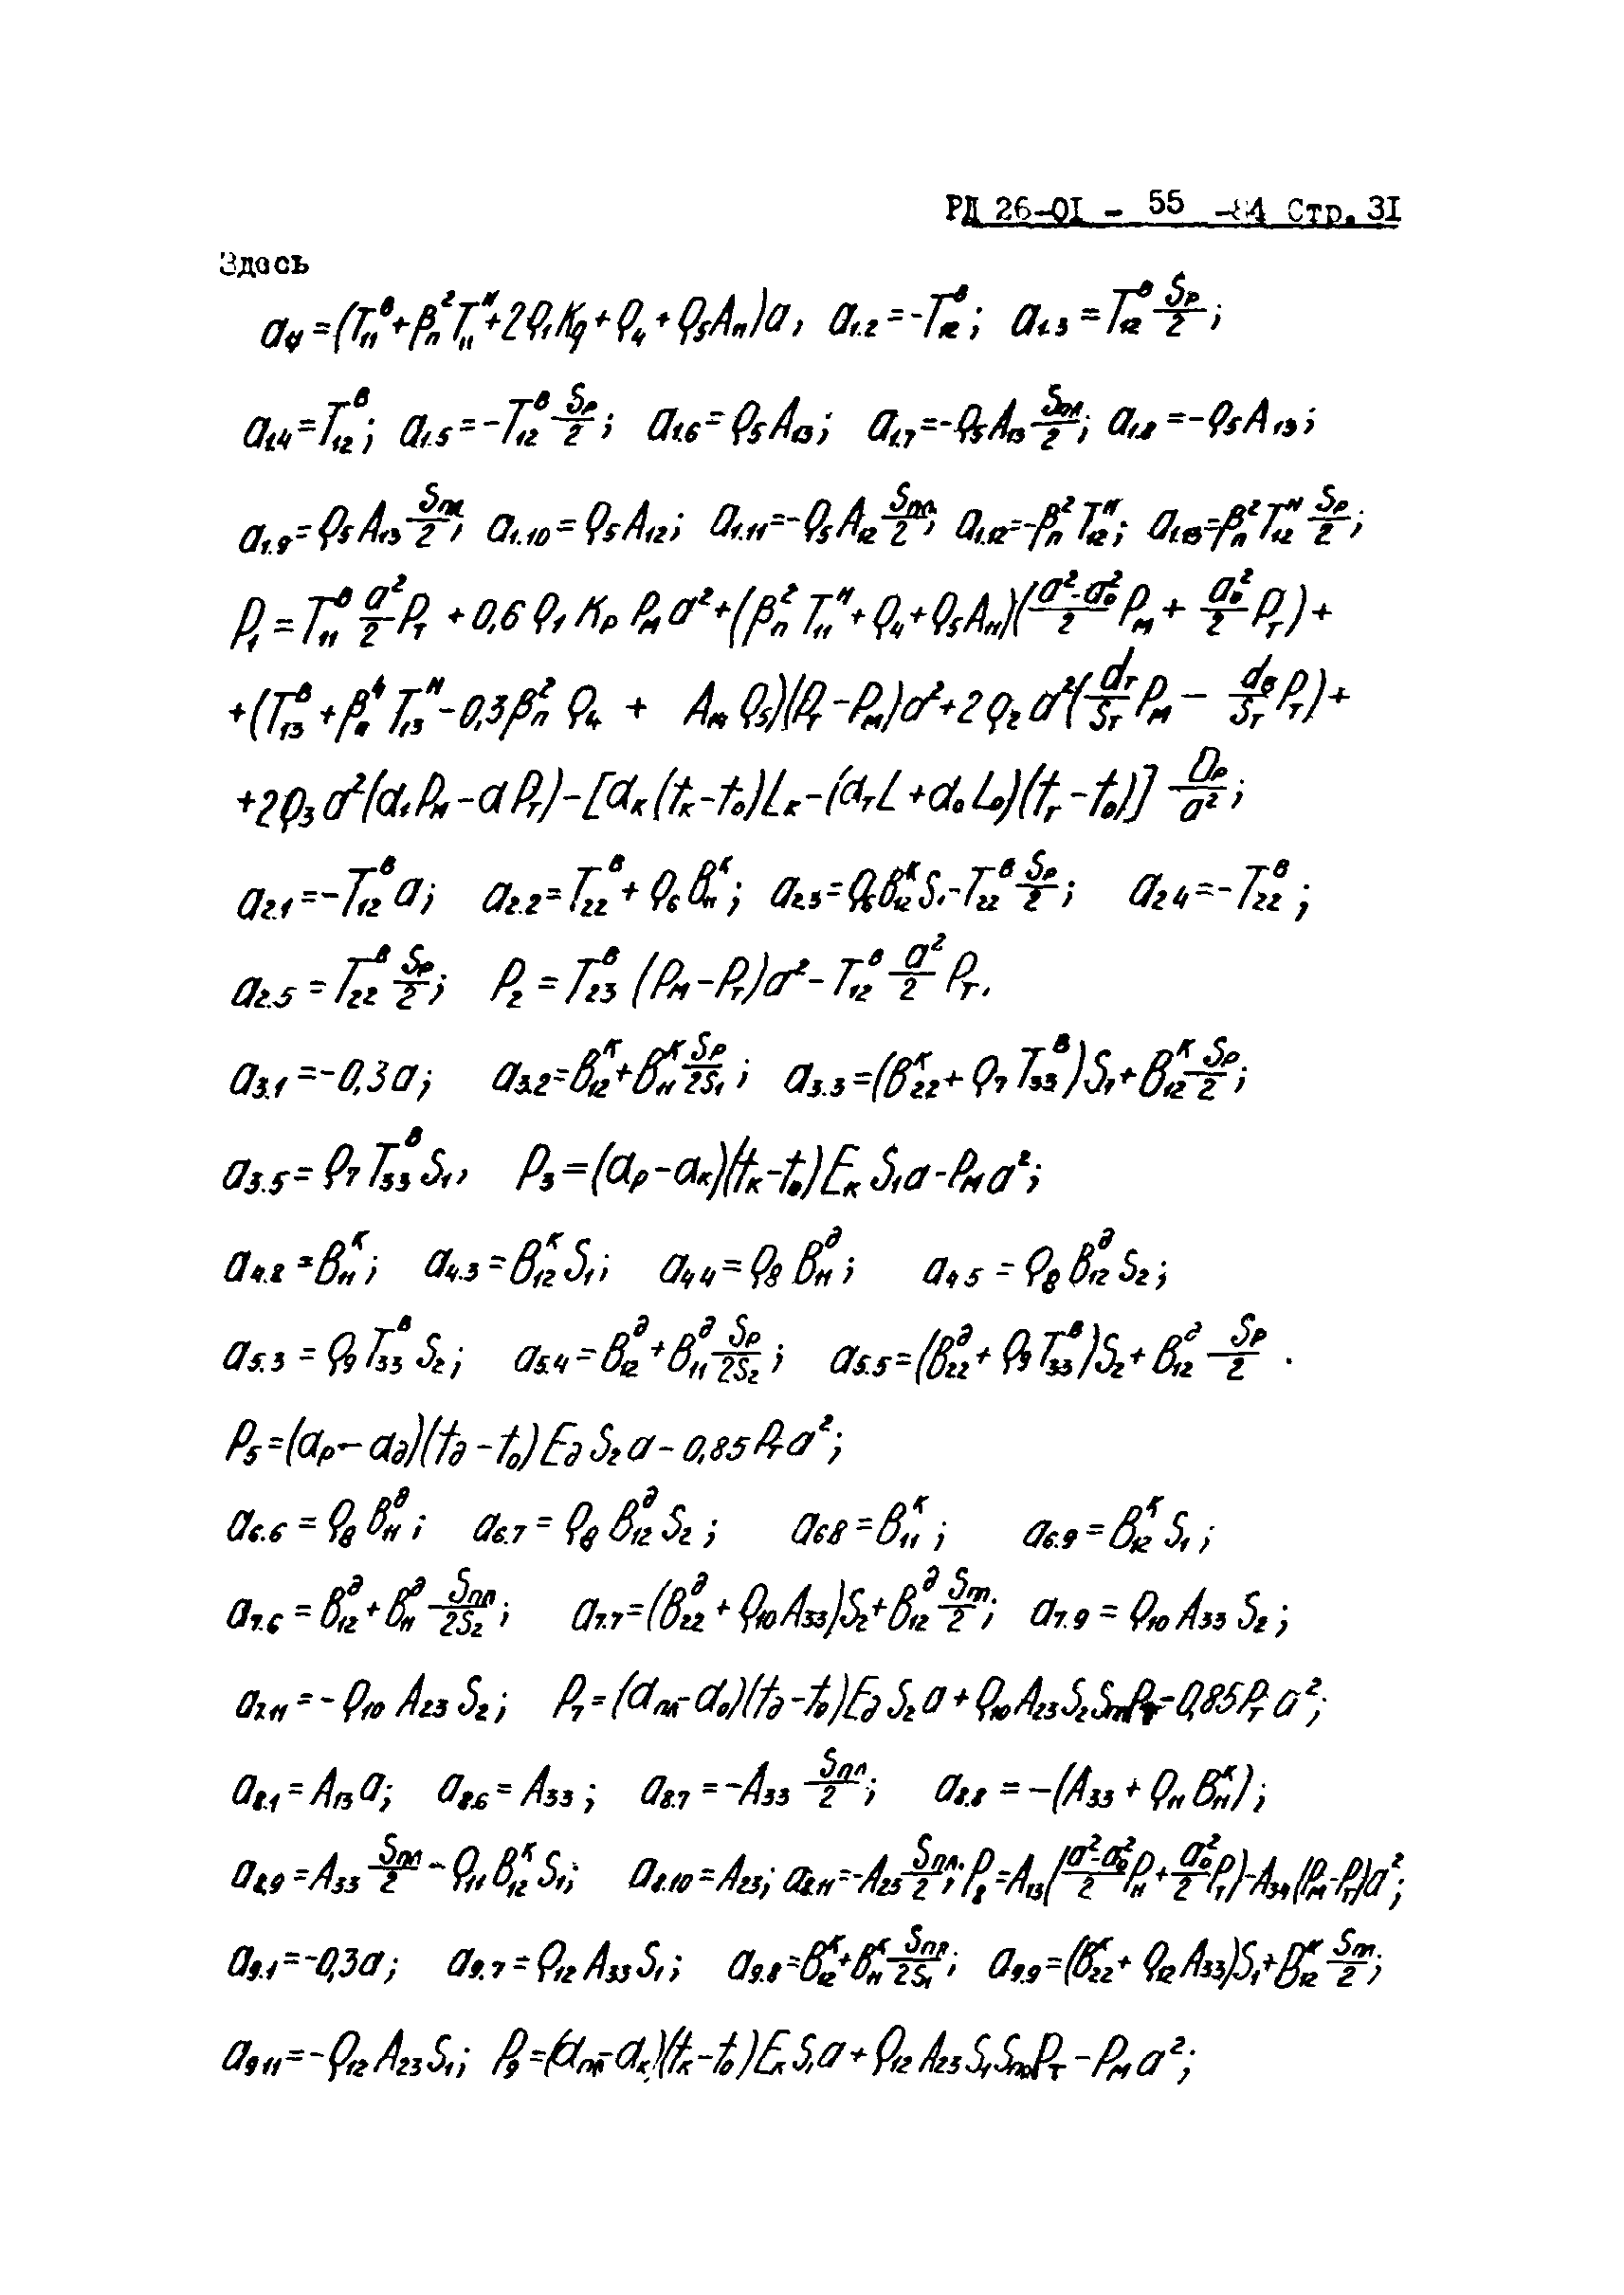 РД 26-01 - 55 -84 Стр. 31
Здесь
a₁.₁ = (T₁₁ᴮ + βₙ² T₁₁ᴴ + 2Q₁Kq + Q₄ + Q₅A₁₁)a, a₁.₂ = -T₁₂ᴮ; a₁.₃ = T₁₂ᴮ Sp/2;
a₁.₄ = T₁₂ᴮ; a₁.₅ = -T₁₂ᴮ Sp/2; a₁.₆ = Q₅A₁₃; a₁.₇ = -Q₅A₁₃ Sпл/2; a₁.₈ = -Q₅A₁₃;
a₁.₉ = Q₅A₁₃ Sпл/2; a₁.₁₀ = Q₅A₁₂; a₁.₁₁ = -Q₅A₁₂ Sпл/2; a₁.₁₂ = -βₙ² T₁₂ᴴ; a₁.₁₃ = βₙ² T₁₂ᴴ Sp/2;
P₁ = T₁₁ᴮ a²/2 Pт + 0,6 Q₁ Kp Pм a² + (βₙ² T₁₁ᴴ + Q₄ + Q₅A₁₁)((a²-a₀²)/2 Pм + a₀²/2 Pт) +
+ (T₁₃ᴮ + βₙ⁴ T₁₃ᴴ - 0,3βₙ² Q₄ + A₁₄ Q₅)(Pт - Pм)a² + 2Q₂ a²(dт/Sт Pм - dв/Sт Pт) +
+ 2Q₃ a²(α₁Pм - αPт) - [αк(tк - t₀)Lк - (αтL + α₀L₀)(tт - t₀)] Dp/a²;
a₂.₁ = -T₁₂ᴮ a; a₂.₂ = T₂₂ᴮ + Q₆ B₁₁ᴷ; a₂.₃ = Q₆B₁₂ᴷ S₁ - T₂₂ᴮ Sp/2; a₂₄ = -T₂₂ᴮ;
a₂.₅ = T₂₂ᴮ Sp/2; P₂ = T₂₃ᴮ (Pм - Pт)a² - T₁₂ᴮ a²/2 Pт.
a₃.₁ = -0,3a; a₃.₂ = B₁₂ᴷ + B₁₁ᴷ Sp/2S₁; a₃.₃ = (B₂₂ᴷ + Q₇ T₃₃ᴮ)S₁ + B₁₂ᴷ Sp/2;
a₃.₅ = Q₇ T₃₃ᴮ S₁, P₃ = (αp - αк)(tк - t₀)Eк S₁a - Pм a²;
a₄.₂ = B₁₁ᴷ; a₄.₃ = B₁₂ᴷ S₁; a₄₄ = Q₈ B₁₁ᵈ; a₄₅ = Q₈ B₁₂ᵈ S₂;
a₅.₃ = Q₉ T₃₃ᴮ S₂; a₅.₄ = B₁₂ᵈ + B₁₁ᵈ Sp/2S₂; a₅.₅ = (B₂₂ᵈ + Q₉ T₃₃ᴮ)S₂ + B₁₂ᵈ Sp/2.
P₅ = (αp - αд)(tд - t₀)Eд S₂ a - 0,85Pт a²;
a₆.₆ = Q₈ B₁₁ᵈ; a₆.₇ = Q₈ B₁₂ᵈ S₂; a₆₈ = B₁₁ᴷ; a₆.₉ = B₁₂ᴷ S₁;
a₇.₆ = B₁₂ᵈ + B₁₁ᵈ Sпл/2S₂; a₇.₇ = (B₂₂ᵈ + Q₁₀A₃₃)S₂ + B₁₂ᵈ Sпл/2; a₇.₉ = Q₁₀ A₃₃ S₂;
a₇.₁₁ = -Q₁₀ A₂₃ S₂; P₇ = (αпл - α₀)(tд - t₀)Eд S₂ a + Q₁₀A₂₃S₂SплPт - 0,85Pт a²;
a₈.₁ = A₁₃a; a₈.₆ = A₃₃; a₈.₇ = -A₃₃ Sпл/2; a₈.₈ = -(A₃₃ + Q₁₁B₁₁ᴷ);
a₈.₉ = A₃₃ Sпл/2 - Q₁₁B₁₂ᴷ S₁; a₈.₁₀ = A₂₃; a₈.₁₁ = -A₂₃ Sпл/2; P₈ = A₁₃((a²-a₀²)/2 Pм + a₀²/2 Pт) - A₃₄(Pм - Pт)a²;
a₉.₁ = -0,3a; a₉.₇ = Q₁₂A₃₃S₁; a₉.₈ = B₁₂ᴷ + B₁₁ᴷ Sпр/2S₁; a₉.₉ = (B₂₂ᴷ + Q₁₂A₃₃)S₁ + B₁₂ᴷ Sпл/2;
a₉₁₁ = -Q₁₂A₂₃S₁; P₉ = (αпл - αк)(tк - t₀)Eк S₁a + Q₁₂ A₂₃S₁SплPт - Pм a²;